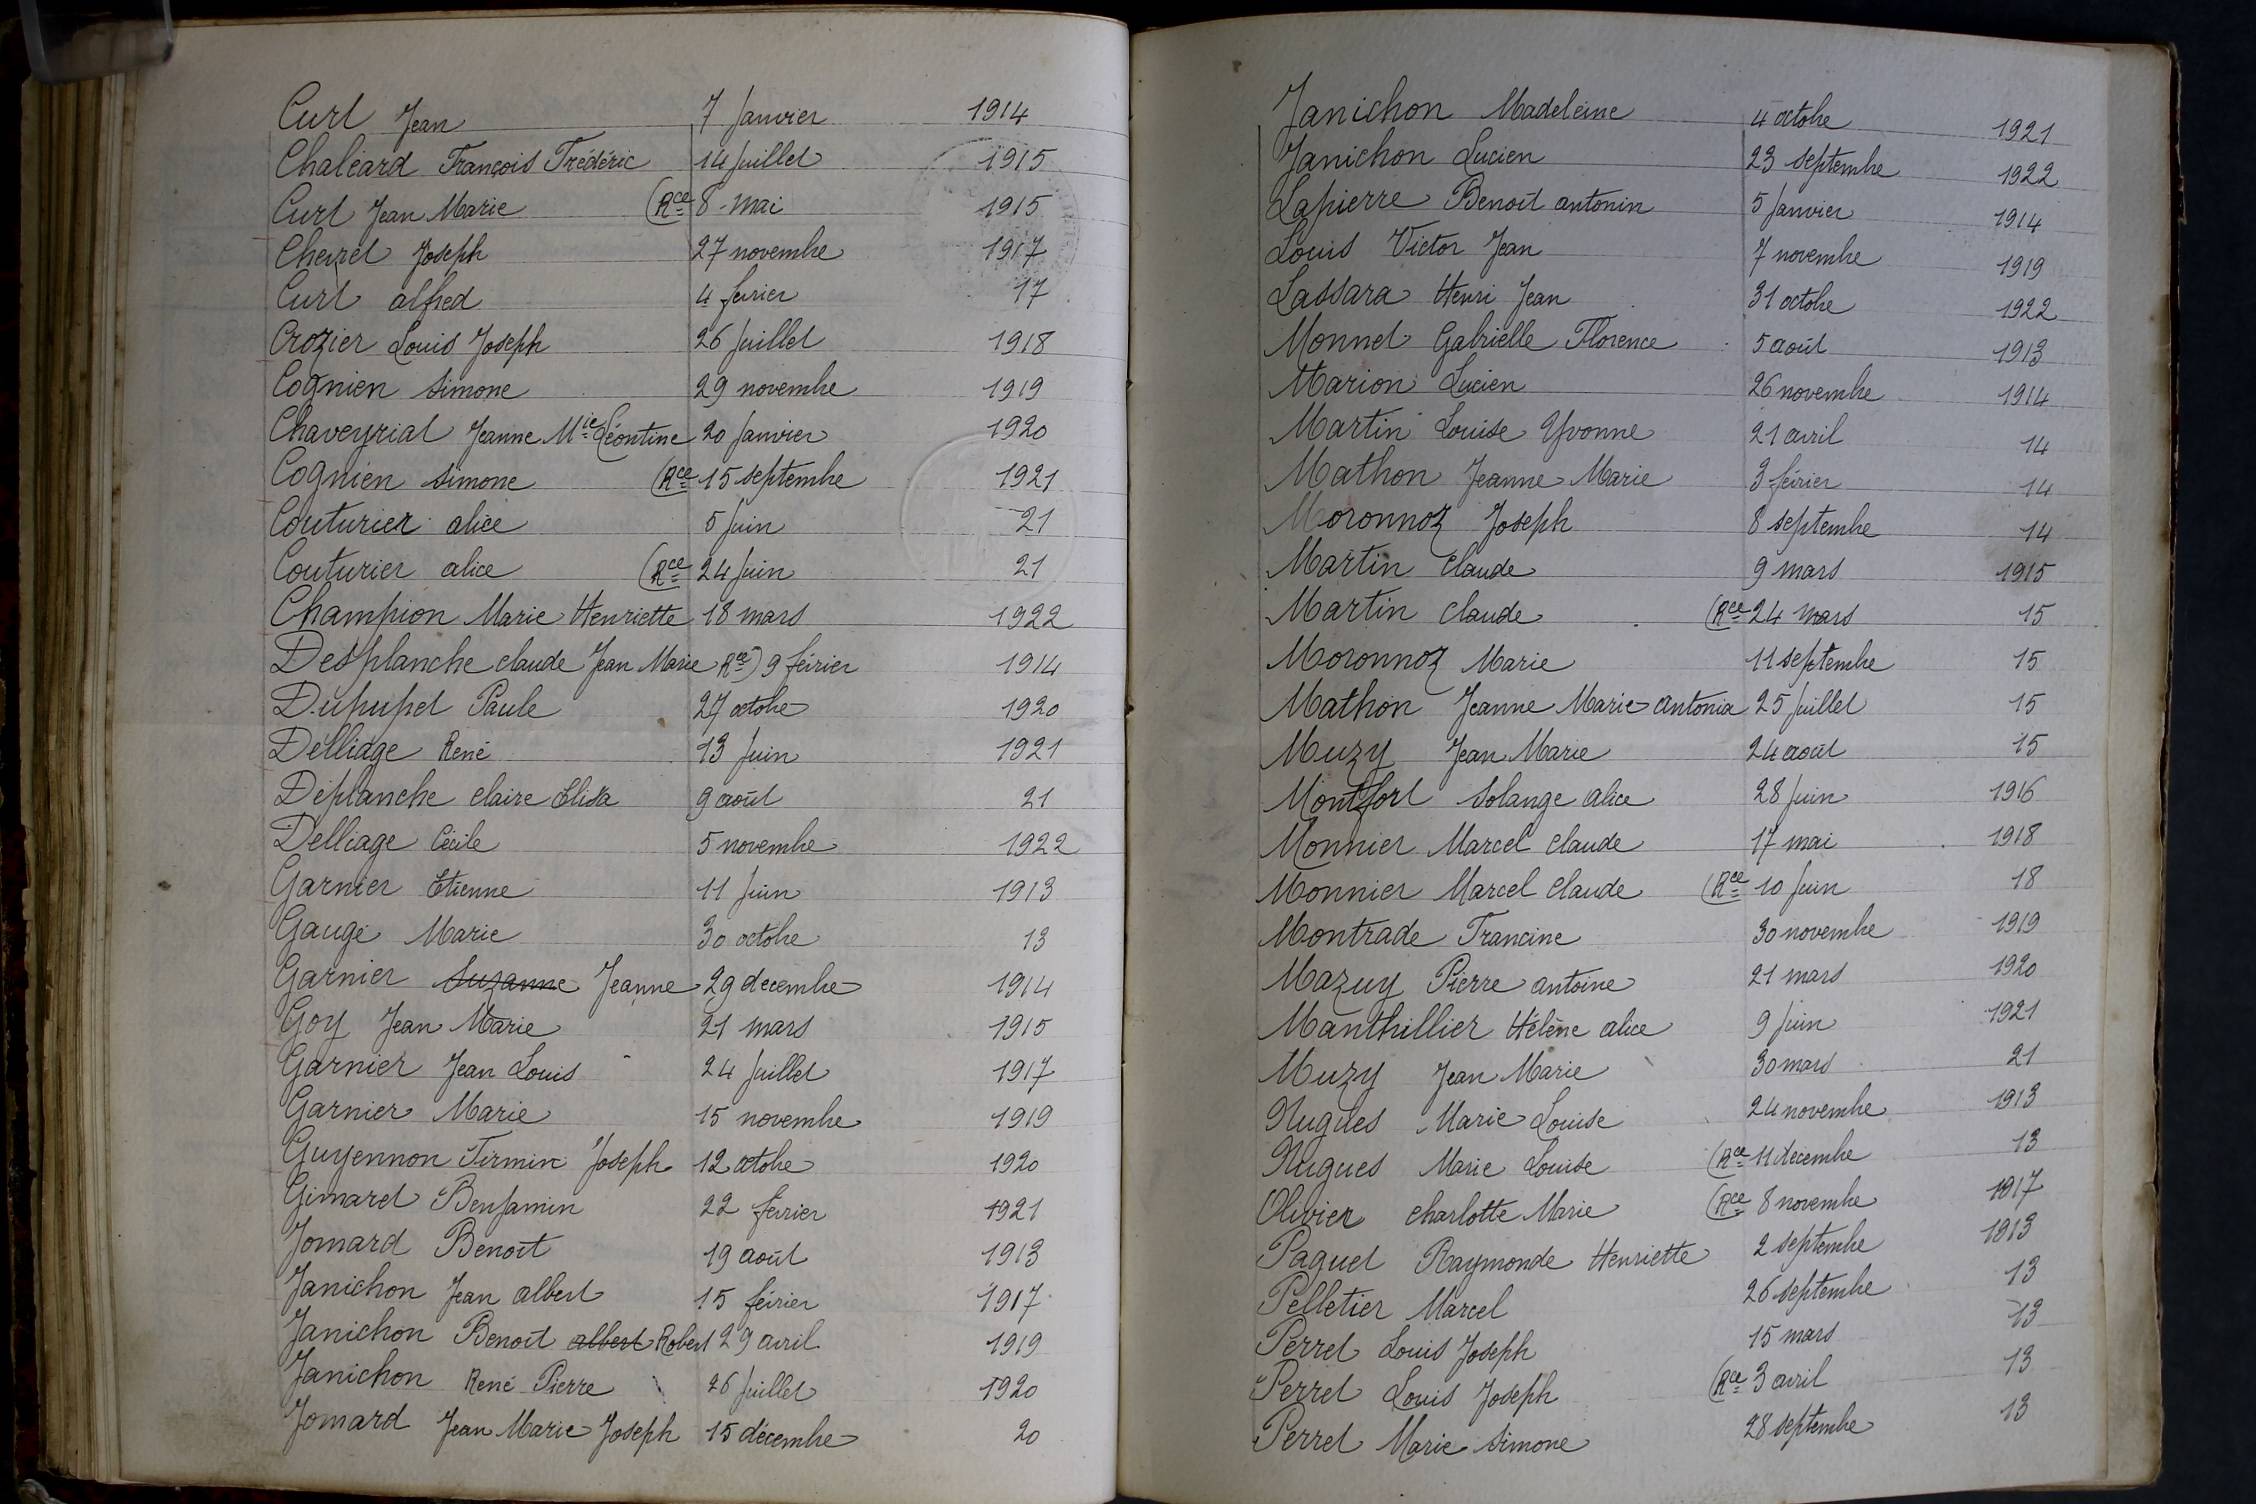 Curt Jean 7 Janvier 1914
Chaléard François Frédéric 14 Juillet 1915
Curt Jean Marie (Rce 8 mai 1915
Cherret Joseph 27 novembre 1917
Curt alfred 4 fevrier 17
Crozier Louis Joseph 26 Juillet 1918
Cognien Simone 29 novembre 1919
Chaveyriat Jeanne Mie Léontine 20 Janvier 1920
Cognien Simone (Rce 15 septembre 1921
Couturier alice 5 Juin 21
Couturier alice (Rce 24 Juin 21
Champion Marie Henriette 18 mars 1922
Desplanche claude Jean Marie Rce) 9 février 1914
Dupupet Paule 27 octobre 1920
Delliage René 13 Juin 1921
Déplanche claire Elisa 9 août 21
Delliage Cécile 5 novembre 1922
Garnier Etienne 11 Juin 1913
Gauge Marie 30 octobre 13
Garnier Suzanne Jeanne 29 decembre 1914
Goy Jean Marie 21 mars 1915
Garnier Jean Louis 24 Juillet 1917
Garnier Marie 15 novembre 1919
Guyennon Firmin Joseph 12 octobre 1920
Gimaret Benjamin 22 fevrier 1921
Jomard Benoît 19 août 1913
Janichon Jean albert 15 février 1917
Janichon Benoit albert Robert 29 avril 1919
Janichon René Pierre 26 Juillet 1920
Jomard Jean Marie Joseph 15 décembre 20
Janichon Madeleine 4 octobre 1921
Janichon Lucien 23 septembre 1922
Lapierre Benoit antonin 5 Janvier 1914
Louis Victor Jean 7 novembre 1919
Lassara Henri Jean 31 octobre 1922
Monnet Gabrielle Florence 5 août 1913
Marion Lucien 26 novembre 1914
Martin Louise Yvonne 21 avril 14
Mathon Jeanne Marie 3 février 14
Moronnoz Joseph 8 septembre 14
Martin claude 9 mars 1915
Martin claude (Rce 24 mars 15
Moronnoz Marie 11 septembre 15
Mathon Jeanne Marie antonia 25 Juillet 15
Muzy Jean Marie 24 août 15
Montfort Solange alice 28 Juin 1916
Monnier Marcel claude 17 mai 1918
Monnier Marcel claude (Rce 10 Juin 18
Montrade Francine 30 novembre 1919
Mazuy Pierre antoine 21 mars 1920
Manthillier Hélène alice 9 Juin 1921
Muzy Jean Marie 30 mars 21
Nugues Marie Louise 24 novembre 1913
Nugues Marie Louise (Rce 11 decembre 13
Olivier charlotte Marie (Rce 8 novembre 1917
Paquet Raymonde Henriette 2 septembre 1913
Pelletier Marcel 26 septembre 13
Perret Louis Joseph 15 mars 13
Perret Louis Joseph (Rce 3 avril 13
Perret Marie Simone 28 septembre 13